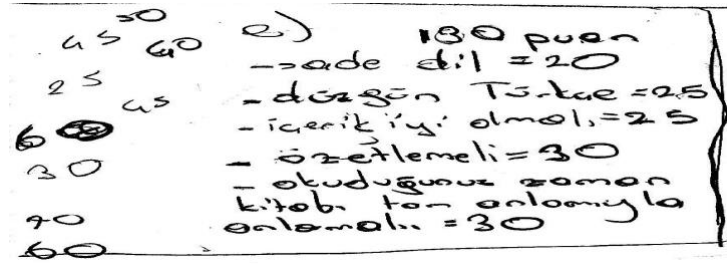 50
45 40
25
45
60
30
40
60
e) 130 puan
-sade dil = 20
- düzgün Türkçe = 25
- içerik iyi olmalı = 25
- özetlemeli = 30
- okuduğunuz zaman
kitabı tam anlamıyla
anlamalı = 30